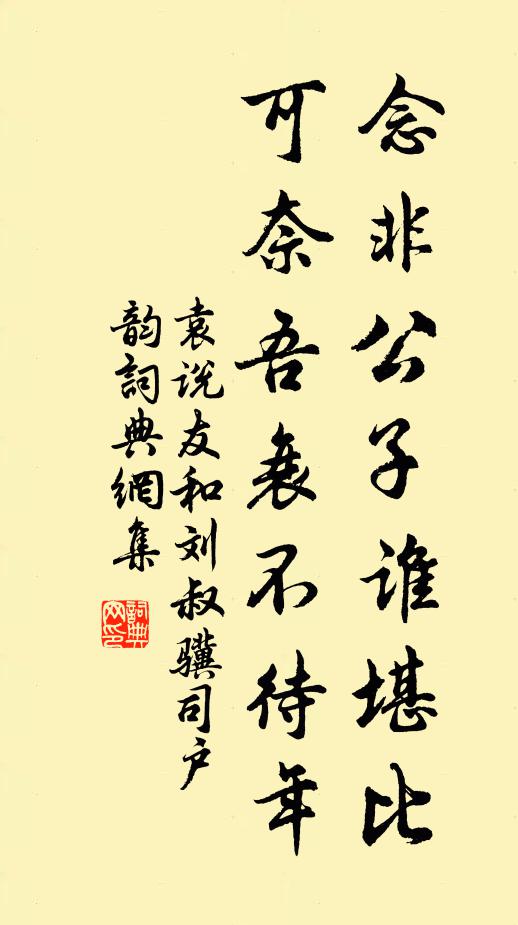 念非公子谁堪比
可奈吾衰不待年
袁说友和刘叔骥司户
韵詞典網集
詞典网印